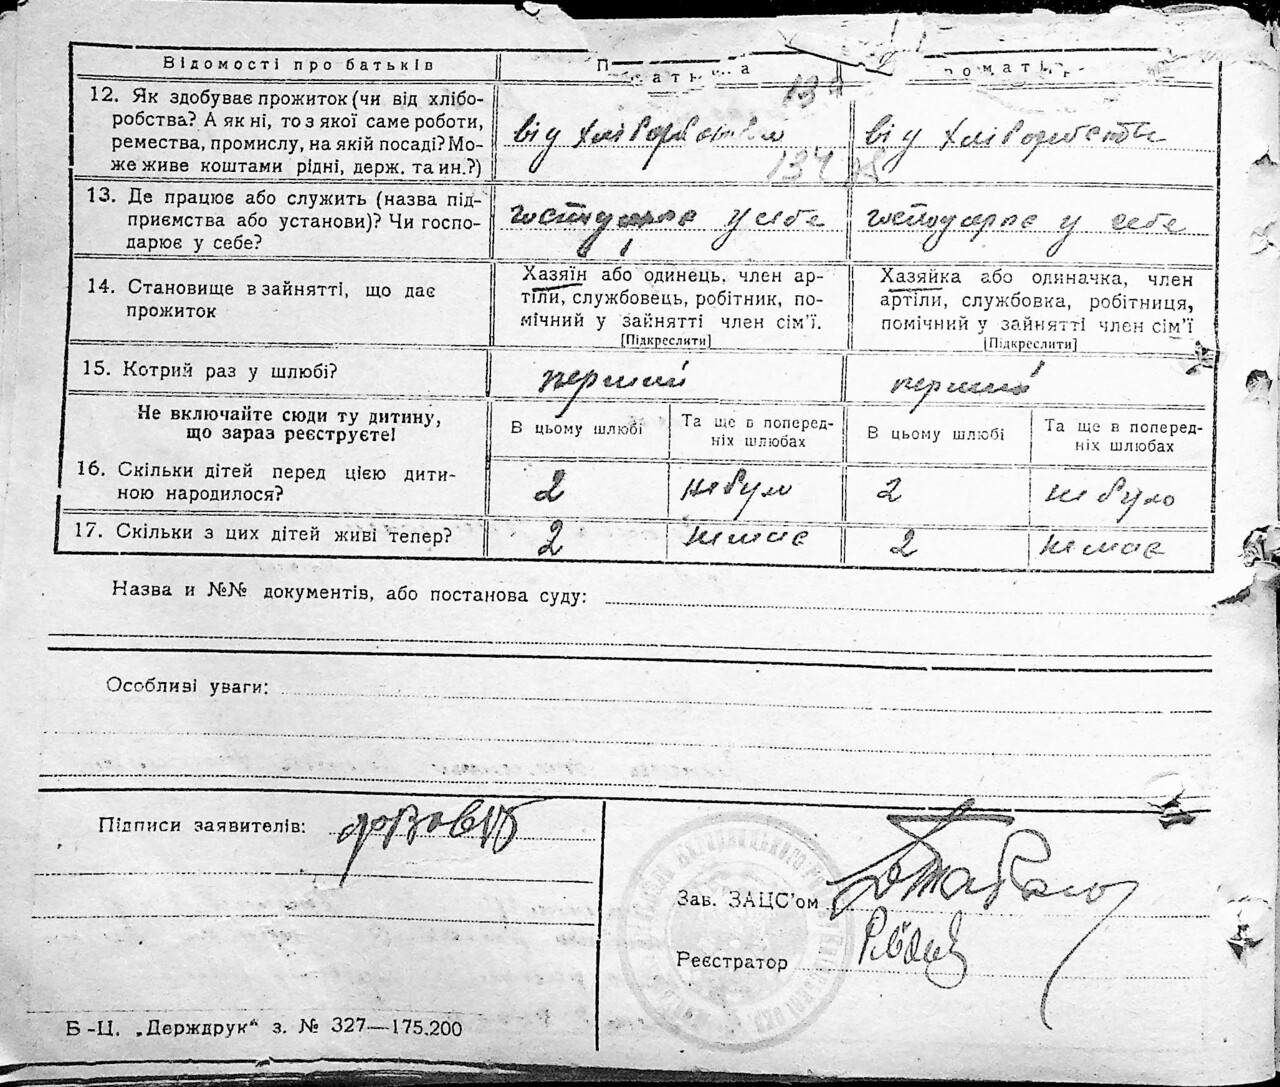 Відомості про батьків
12. Як здобуває прожиток (чи від хлібо-
робства? А як ні, то з якої саме роботи,
ремества, промислу, на якій посаді? Мо-
же живе коштами рідні, держ. та ин.?)
від хліборобства
від хліборобства
134
13. Де працює або служить (назва під-
приємства або установи)? Чи госпо-
дарює у себе?
господарює у себе
господарює у себе
14. Становище в зайнятті, що дає
прожиток
Хазяїн або одинець, член ар-
тіли, службовець, робітник, по-
мічний у зайнятті член сім'ї.
[Підкреслити]
Хазяйка або одиначка, член
артіли, службовка, робітниця,
помічний у зайнятті член сім'ї
[Підкреслити]
15. Котрий раз у шлюбі?
перший
перший
Не включайте сюди ту дитину,
що зараз реєструєте!
В цьому шлюбі
Та ще в поперед-
ніх шлюбах
В цьому шлюбі
Та ще в поперед-
ніх шлюбах
16. Скільки дітей перед цією дити-
ною народилося?
2
не було
2
не було
17. Скільки з цих дітей живі тепер?
2
немає
2
немає
Назва и №№ документів, або постанова суду:
Особливі уваги:
Підписи заявителів:
Зав. ЗАЦС'ом
Реєстратор
Б-Ц. „Держдрук“ з. № 327—175.200